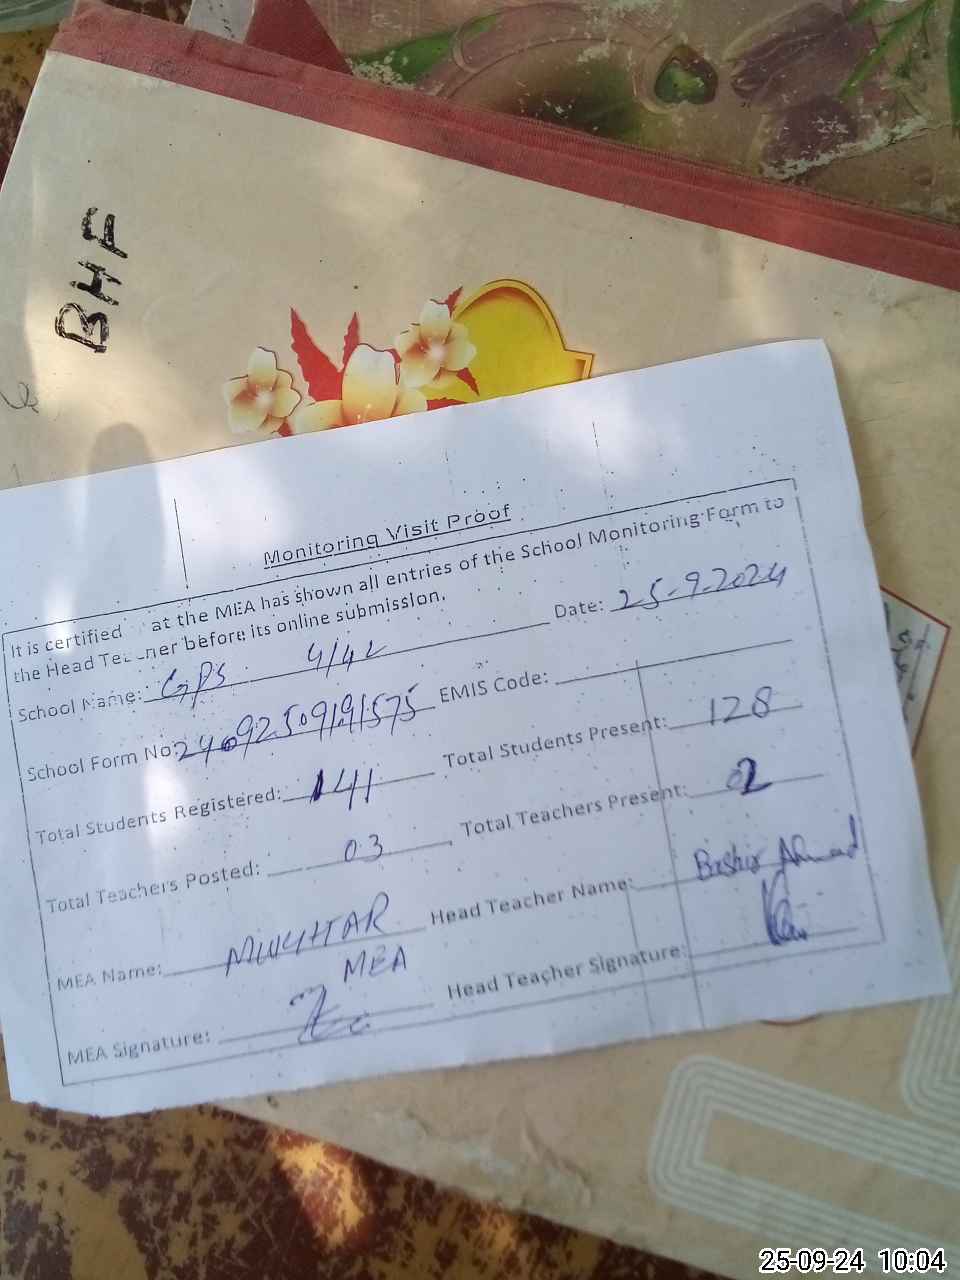 BHF
Monitoring Visit Proof
It is certified at the MEA has shown all entries of the School Monitoring Form to
the Head Te ner before its online submission.
School Name: GPS 4/4L Date: 25-9-2024
School Form No: EMIS Code:
Total Students Registered: 141 Total Students Present: 128
Total Teachers Posted: 03 Total Teachers Present: 02
MEA Name: MUKHTAR Head Teacher Name: Bashir Ahmad
MEA
MEA Signature: Head Teacher Signature:
25-09-24 10:04